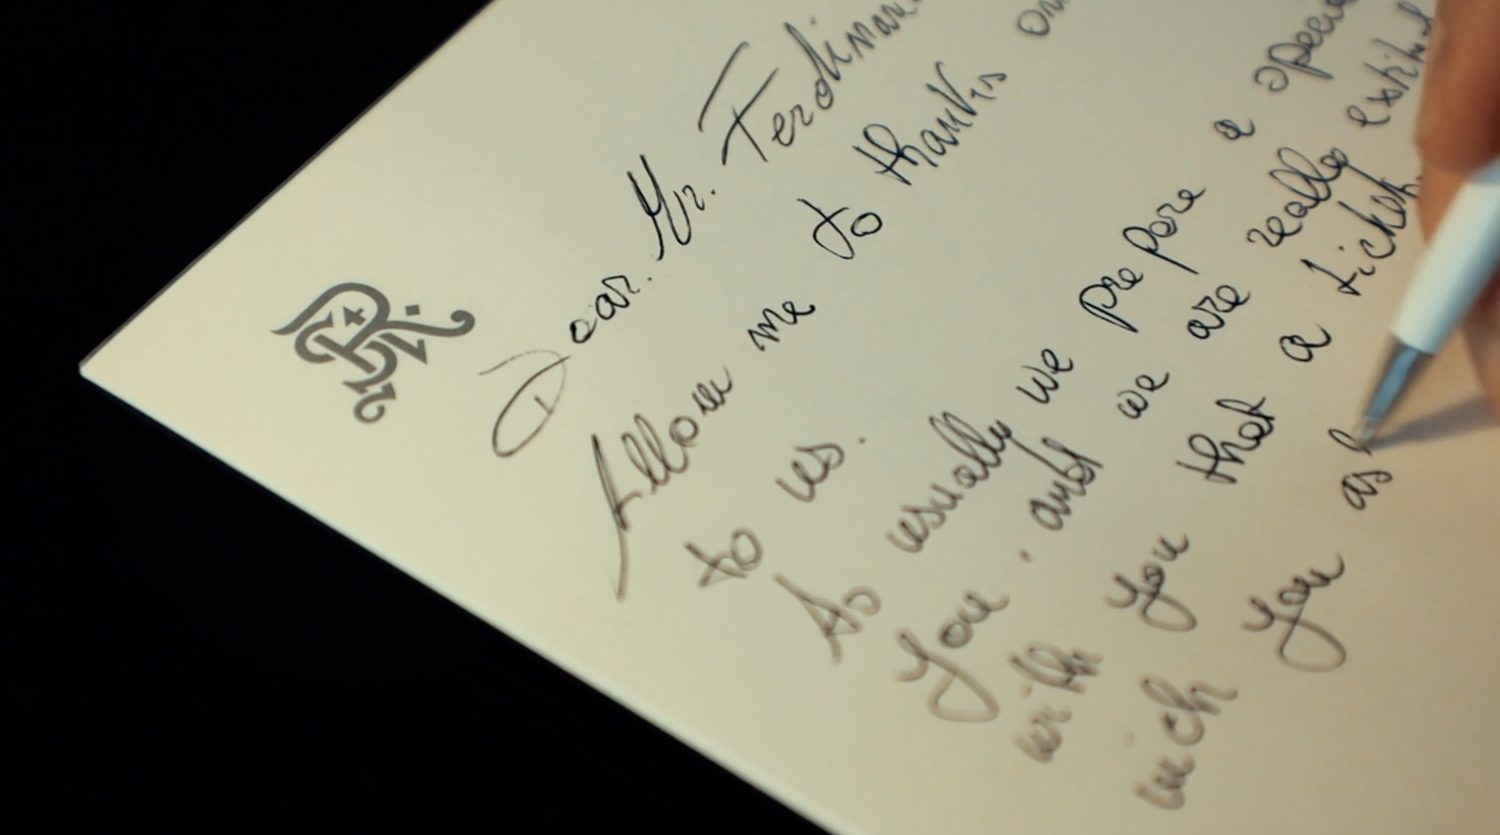 Dear. Mr. Ferdinan
Allow me to thank
to us.
As usually we prepare a speci
you. and we are really
with you that a ticket
wich you as